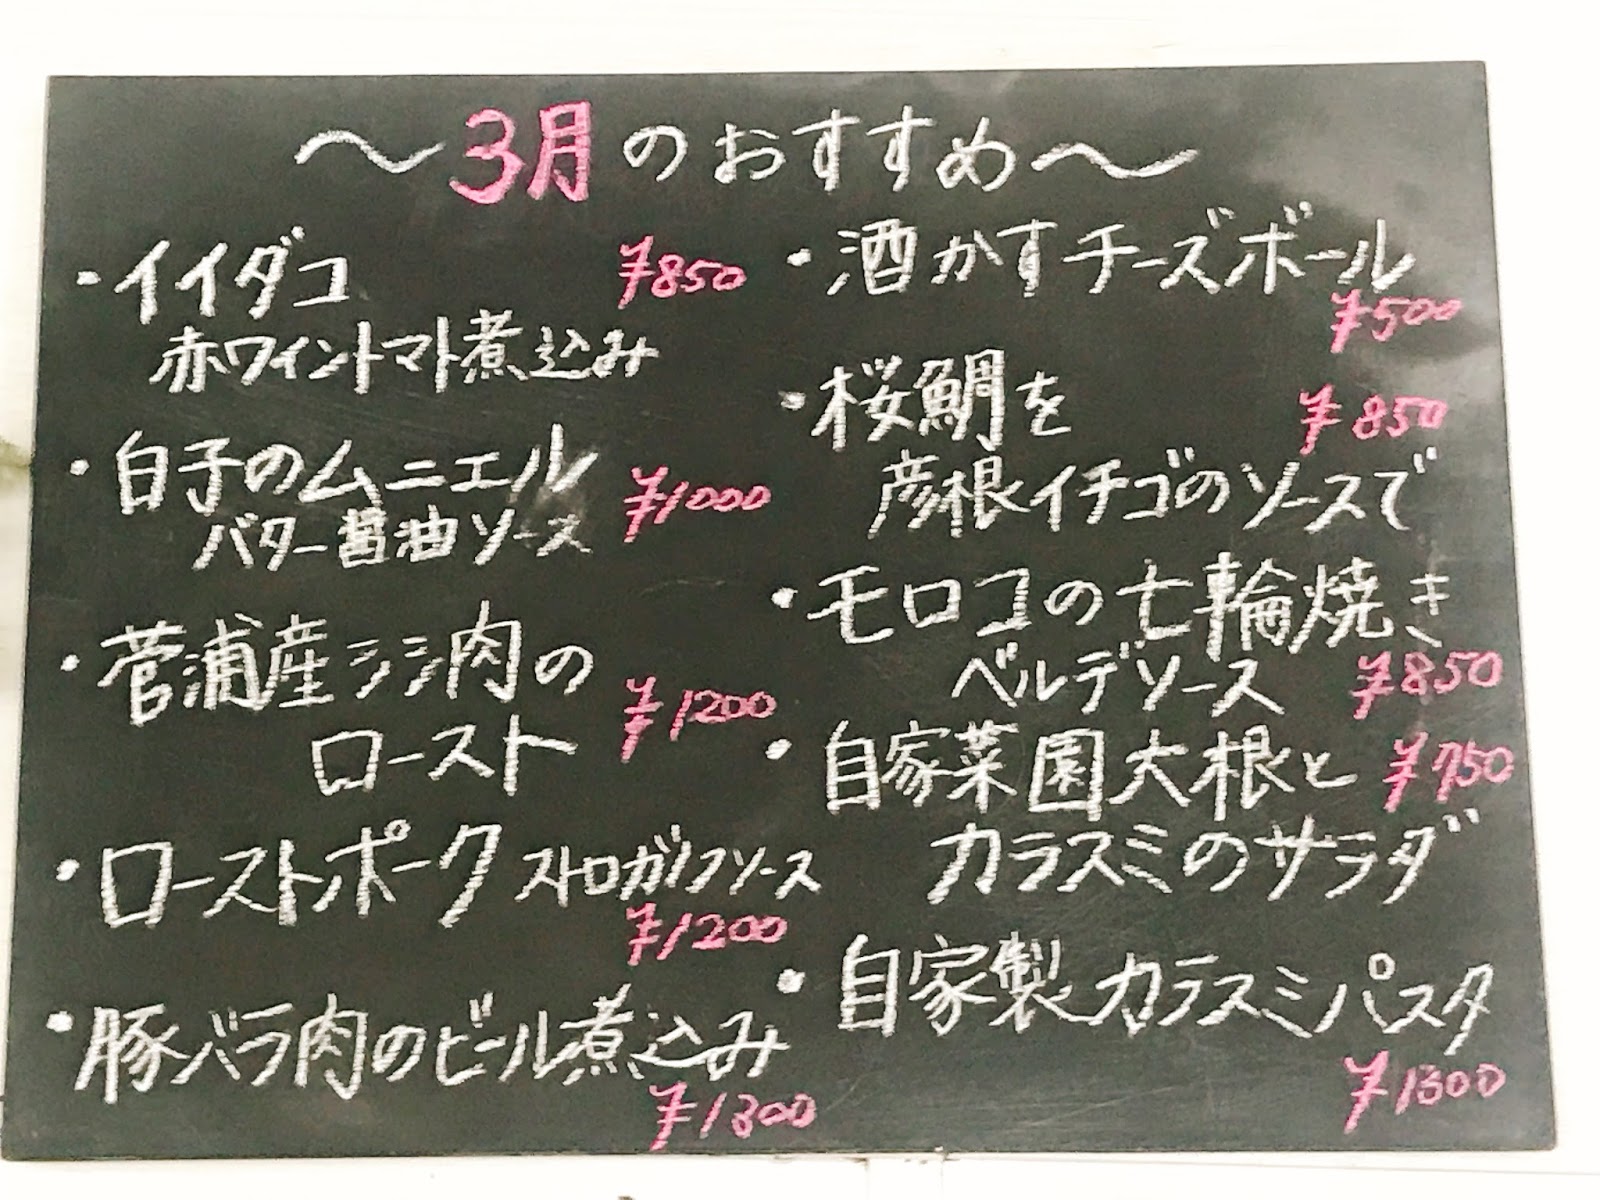 〜3月のおすすめ〜
・イイダコ ¥850
赤ワイントマト煮込み
・白子のムニエル
バター醤油ソース ¥1000
・菅浦産シシ肉の
ロースト ¥1200
・ローストポーク ストロガノフソース
¥1200
・豚バラ肉のビール煮込み
¥1300
・酒かすチーズボール
¥500
・桜鯛を ¥850
彦根イチゴのソースで
・モロコの七輪焼き
ベルデソース ¥850
・自家菜園大根と ¥750
カラスミのサラダ
・自家製カラスミパスタ
¥1300